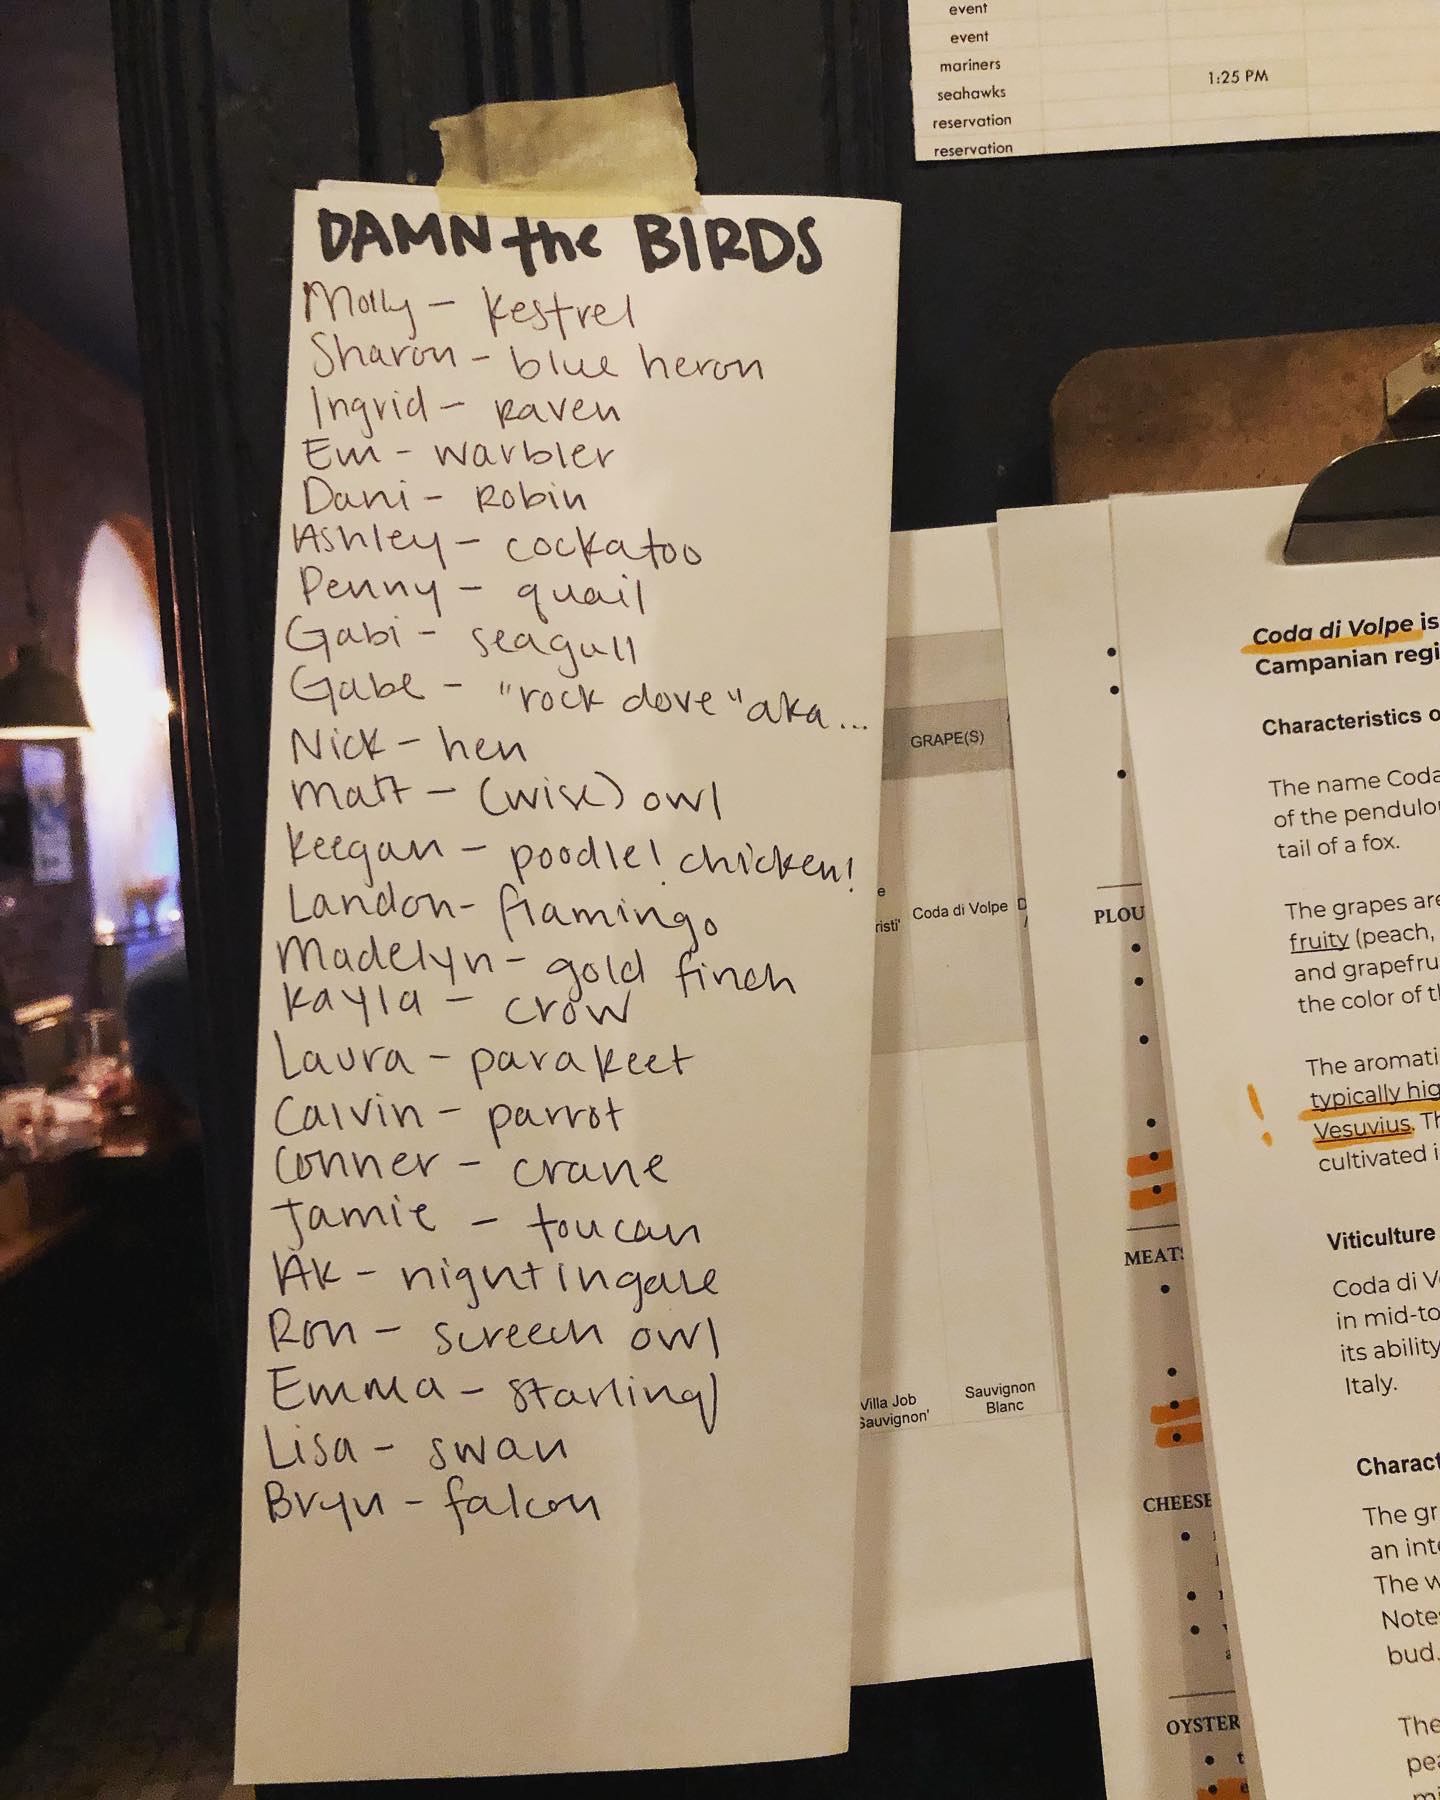 event
event
mariners
seahawks
reservation
reservation
1:25 PM
DAMN the BIRDS
Molly - kestrel
Sharon - blue heron
Ingrid - raven
Em - warbler
Dani - Robin
Ashley - cockatoo
Penny - quail
Gabi - seagull
Gabe - "rock dove" aka...
Nick - hen
Matt - (wise) owl
Keegan - poodle! chicken!
Landon - flamingo
Madelyn - gold finch
Kayla - crow
Laura - parakeet
Calvin - parrot
Conner - crane
Jamie - toucan
AK - nightingale
Ron - screech owl
Emma - starling
Lisa - swan
Bryn - falcon
GRAPE(S)
risti'
Coda di Volpe
Villa Job
Sauvignon'
Sauvignon
Blanc
PLOU
MEATS
CHEESE
OYSTER
Coda di Volpe is
Campanian regi
Characteristics o
The name Coda
of the pendulo
tail of a fox.
The grapes are
fruity (peach,
and grapefru
the color of t
The aromati
typically hig
! Vesuvius. Th
cultivated i
Viticulture
Coda di V
in mid-to
its ability
Italy.
Charact
The gr
an inte
The w
Note
bud.
The
pea
mi